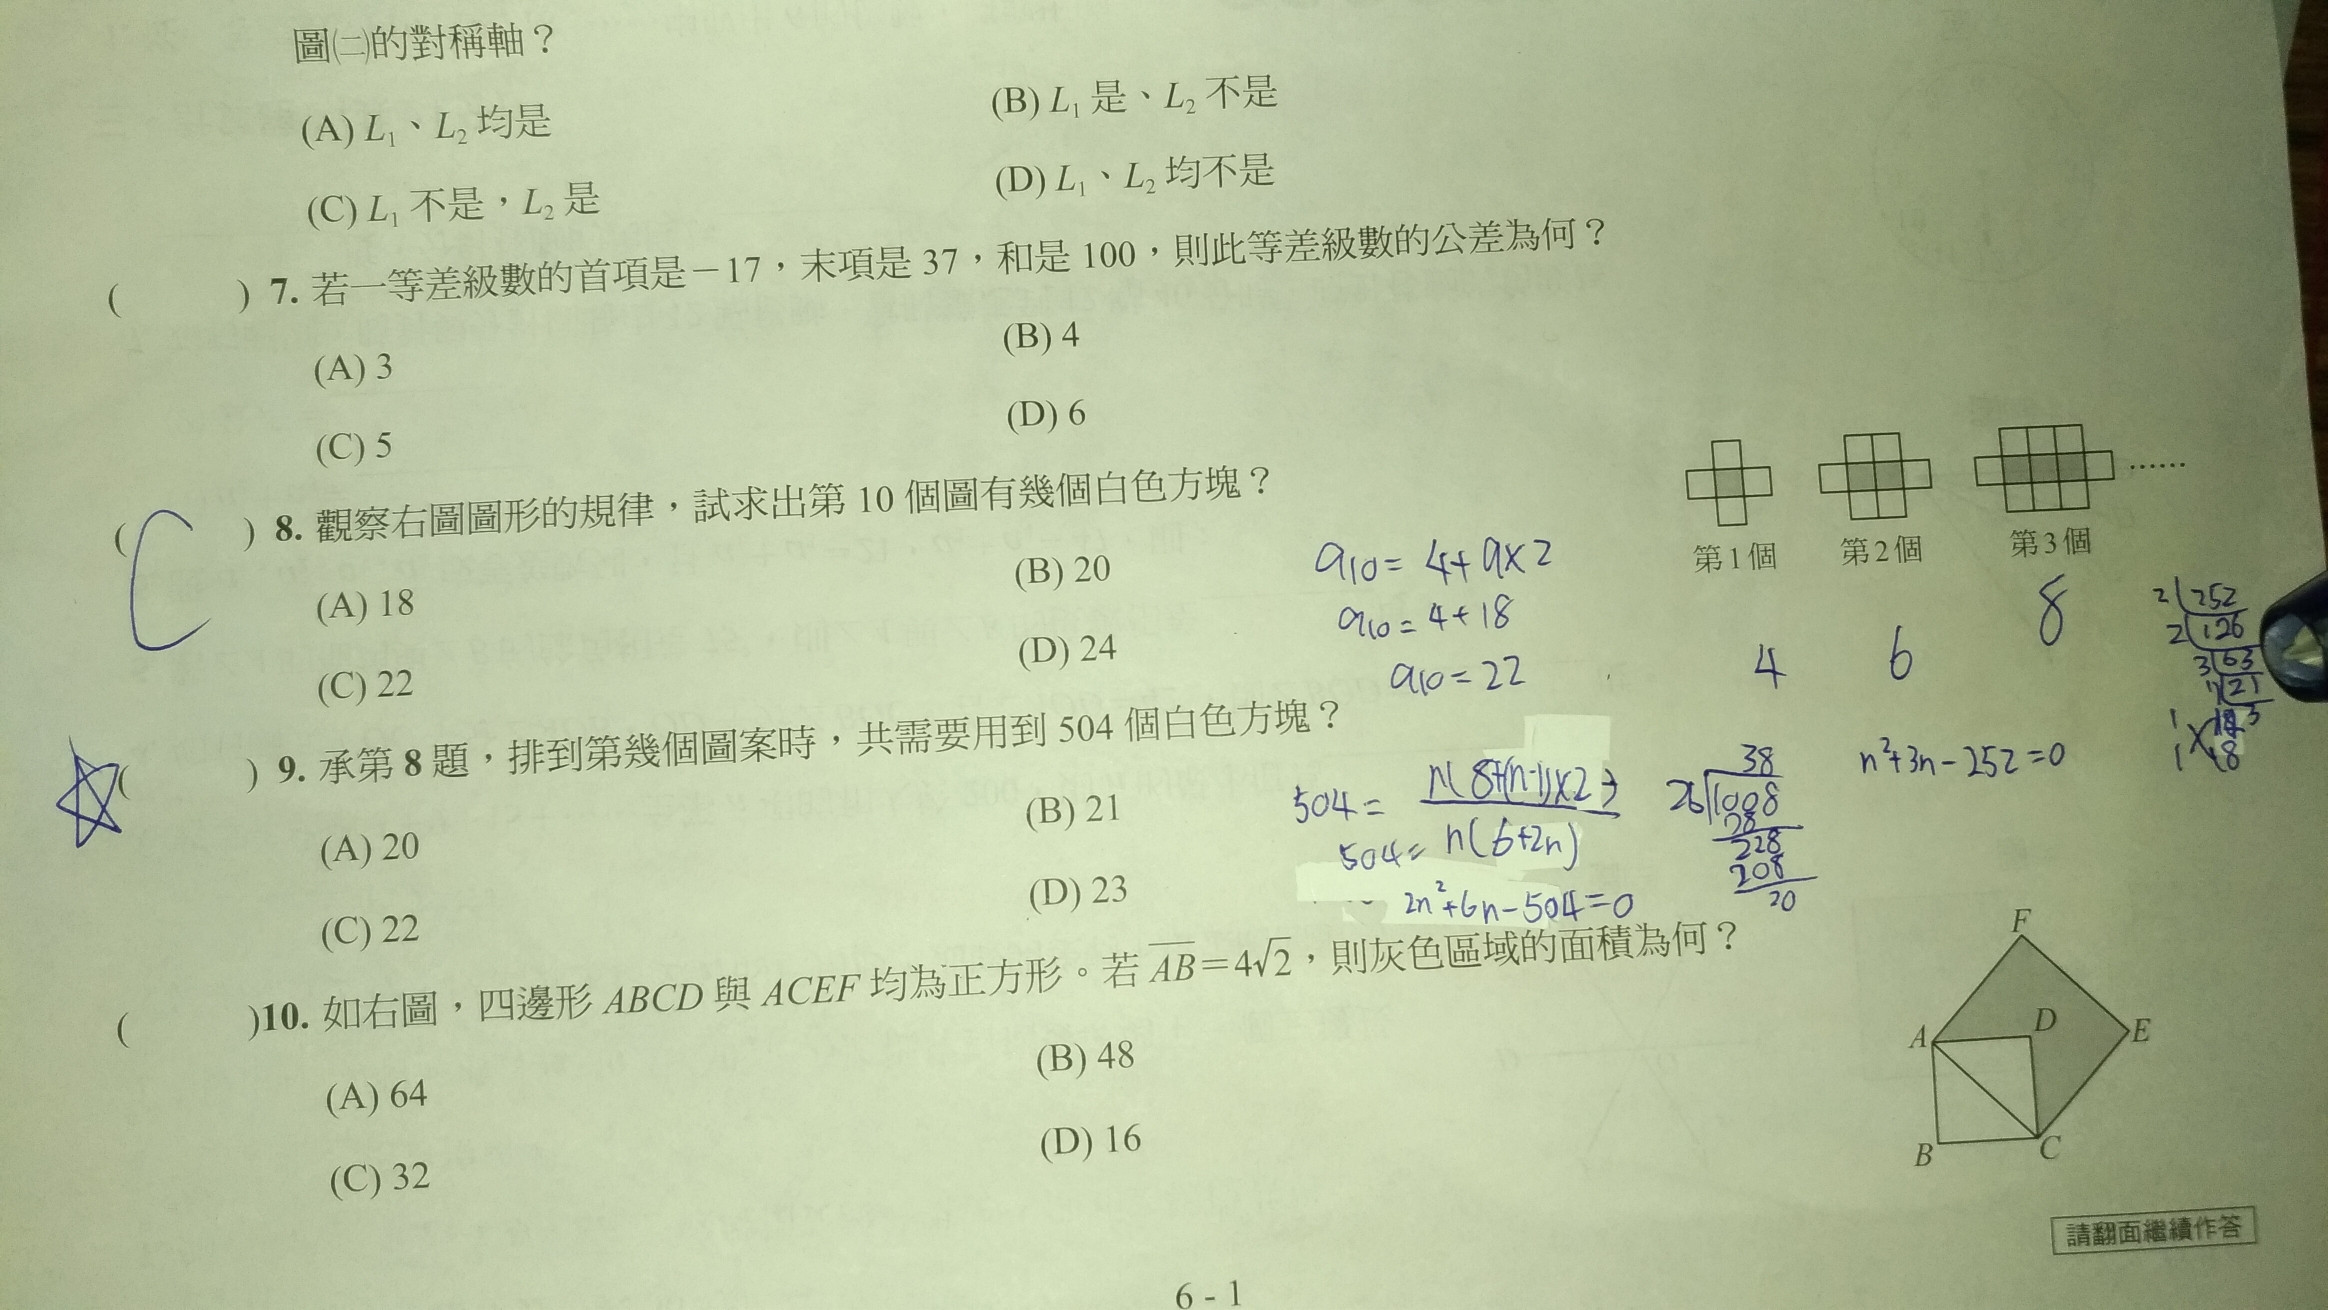 圖㈡的對稱軸？
(A) L₁、L₂ 均是
(B) L₁ 是、L₂ 不是
(C) L₁ 不是，L₂ 是
(D) L₁、L₂ 均不是
( ) 7. 若一等差級數的首項是－17，末項是 37，和是 100，則此等差級數的公差為何？
(A) 3
(B) 4
(C) 5
(D) 6
( C ) 8. 觀察右圖圖形的規律，試求出第 10 個圖有幾個白色方塊？
(A) 18
(B) 20
(C) 22
(D) 24
……
第1個 第2個 第3個
4 6 8
a10 = 4+9×2
a10 = 4+18
a10 = 22
( ) 9. 承第 8 題，排到第幾個圖案時，共需要用到 504 個白色方塊？
(A) 20
(B) 21
(C) 22
(D) 23
504 = n(8+(n-1)×2)
504 = n(6+2n)
2n²+6n-504=0
38
26 1008
78
228
208
20
n²+3n-252=0
2 252
2 126
3 63
21
( )10. 如右圖，四邊形 ABCD 與 ACEF 均為正方形。若 AB＝4√2，則灰色區域的面積為何？
(A) 64
(B) 48
(C) 32
(D) 16
F
A
D
E
B
C
請翻面繼續作答
6 - 1